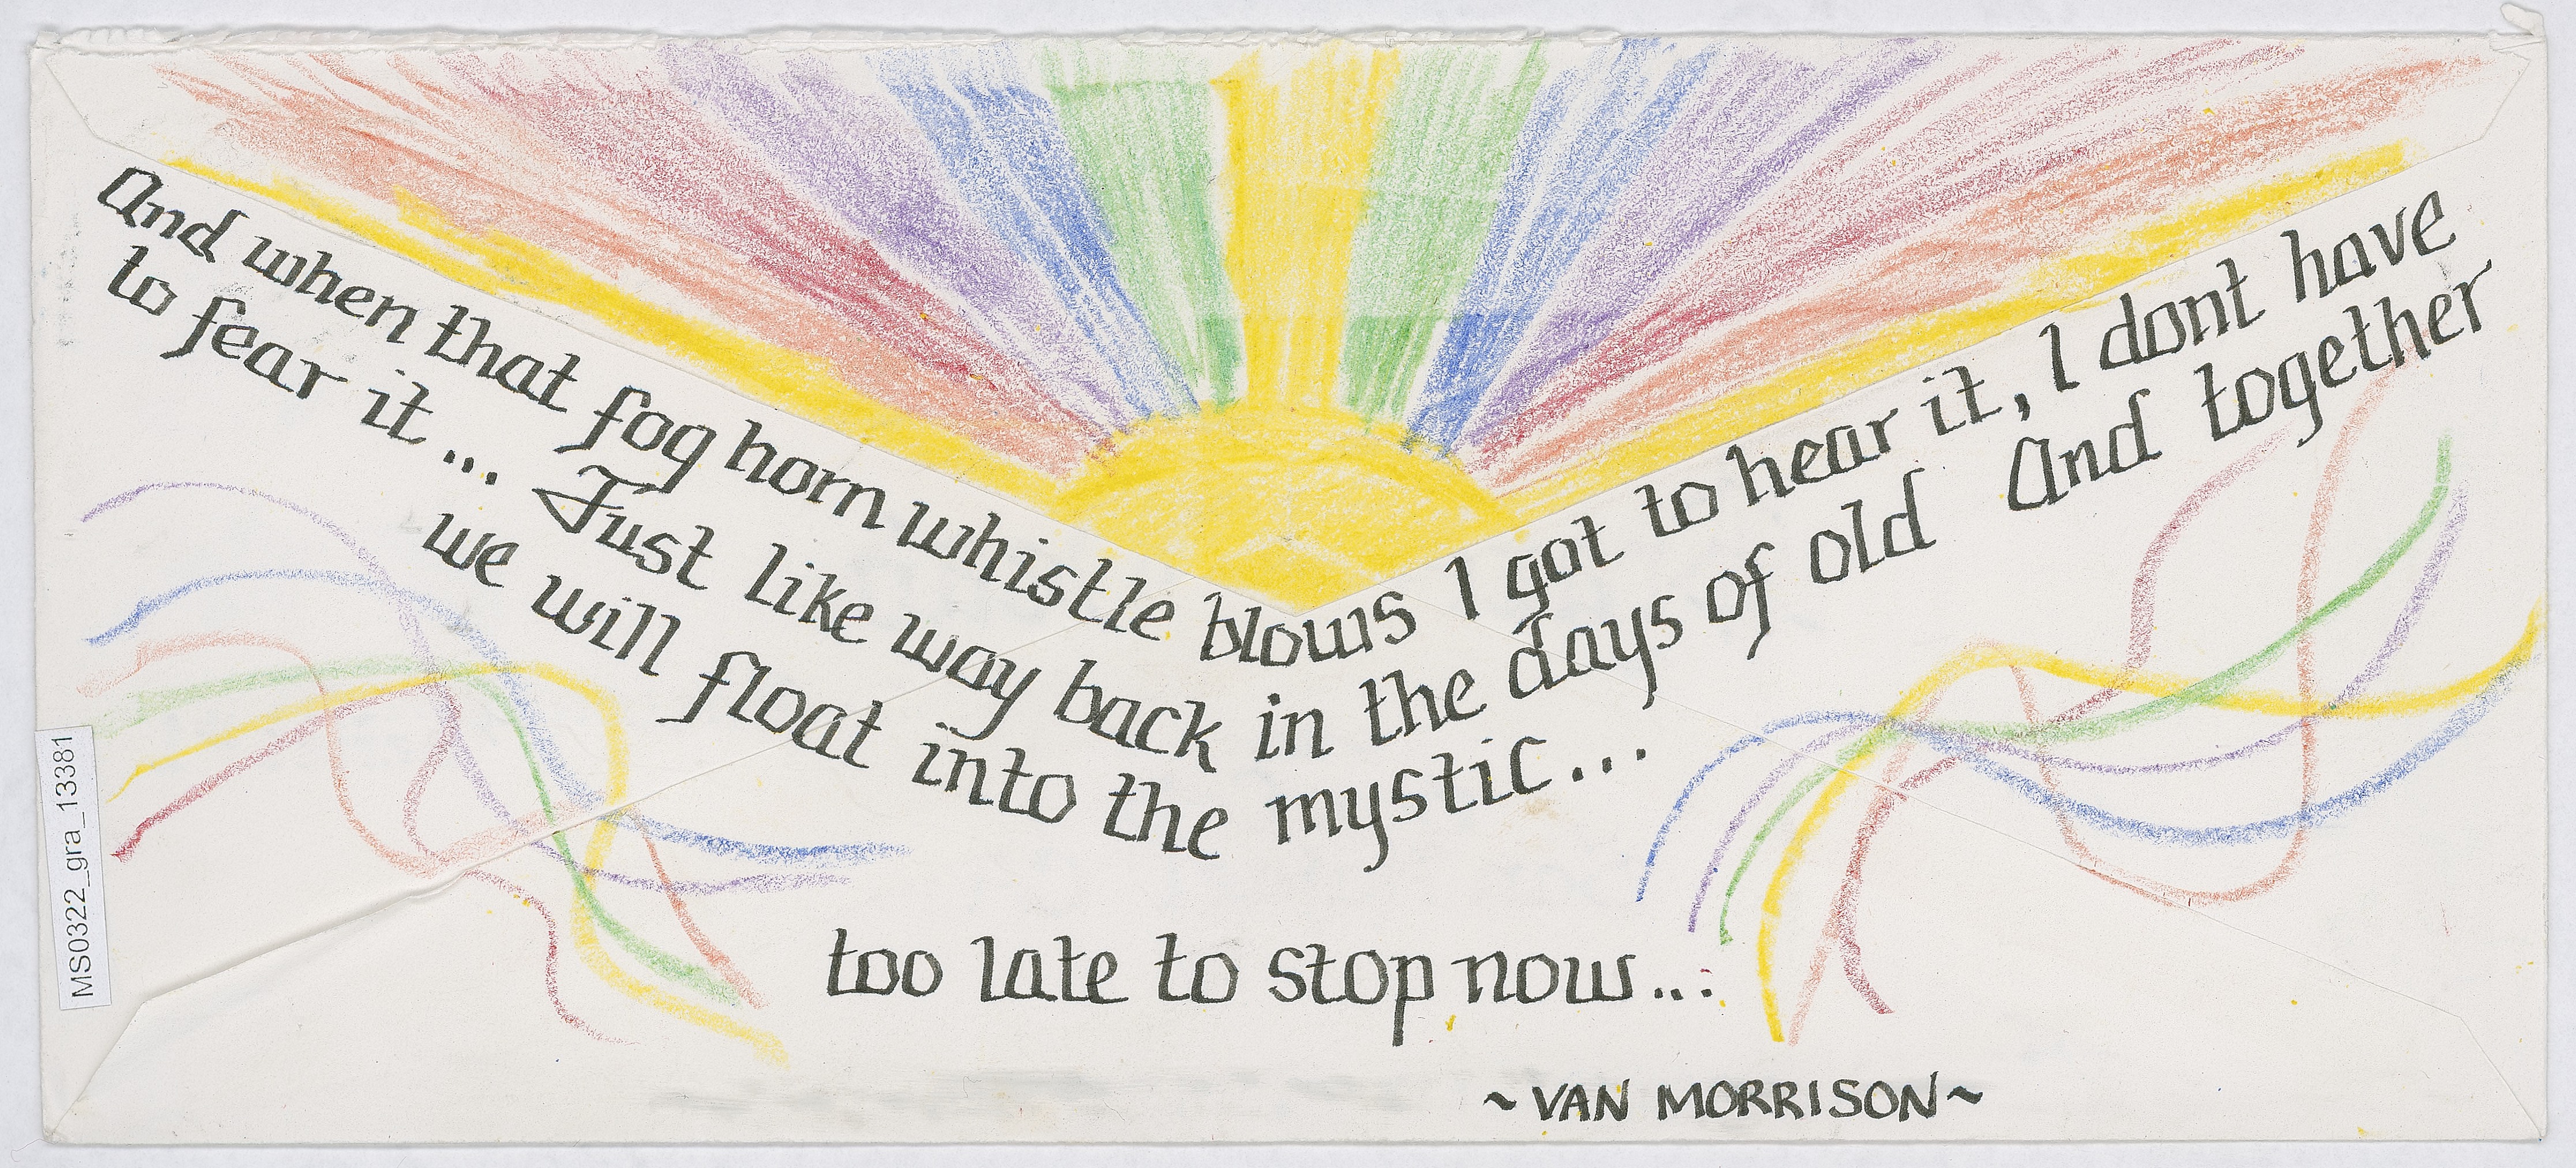 And when that fog horn whistle blows I got to hear it, I dont have
to fear it... Just like way back in the days of old And together
we will float into the mystic...
too late to stop now...
~VAN MORRISON~
MS0322_gra_13381